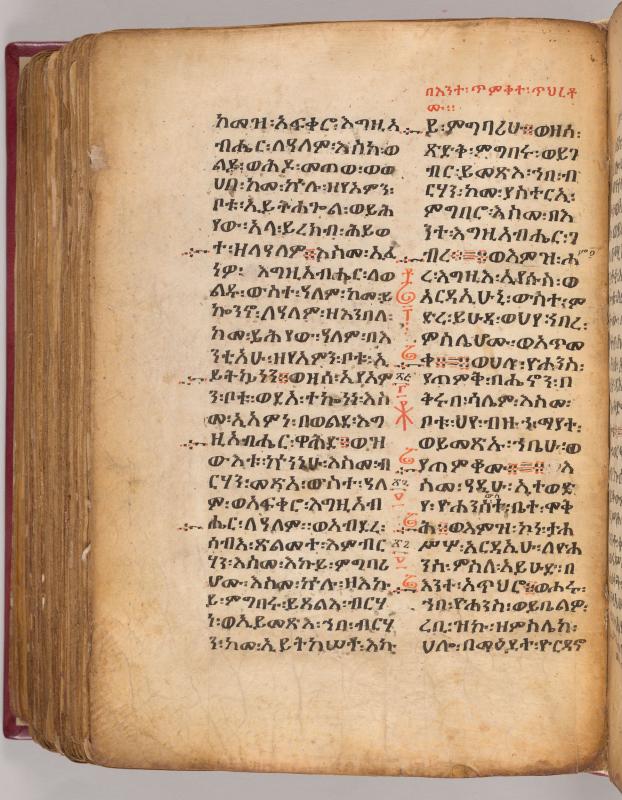 በእንተ፡ጥምቀተ፡ጥህረቶ
ሙ፡፡
ከመዝ፡አፍቀሮ፡እግዚአ
ብሔር፡ለዓለም፡እስከ፡ወ
ልዶ፡ወሕዶ፡መጠወ፡ወወ
ሀበ፡ከመ፡ኵሉ፡ዘየአምን፡
ቦቱ፡ኢይትሐጐል፡ወይሕ
የው፡አላ፡ይረክብ፡ሕይወ
ት፡ዘለዓለም፡፡እስመ፡አፈ
ነዎ፡ እግዚአብሔር፡ለወ
ልዱ፡ውስተ፡ዓለም፡ከመ፡ይ
ኰንኖ፡ለዓለም፡ዘእንበለ፡
ከመ፡ይሕየው፡ዓለም፡በእ
ንቲአሁ፡ዘየአምን፡ቦቱ፡ኢ
ይትኴነን፡፡ወዘሰ፡ኢየአም
ን፡ቦቱ፡ወደአ፡ተኰነነ፡እስ
መ፡ኢአምነ፡በወልደ፡እግ
ዚአብሔር፡ዋሕድ፡፡ወዝ
ውእቱ፡ኵነኔሁ፡እስመ፡ብ
ርሃን፡መጽአ፡ውስተ፡ዓለ
ም፡ወአፍቀሮ፡እግዚአብ
ሔር፡ለዓለም፡፡ወአብደረ፡
ሰብእ፡ጽልመተ፡እምብር
ሃን፡እስመ፡እኩይ፡ምግባሪ
ሆሙ፡እስመ፡ኵሉ፡ዘእኩ
ይ፡ምግባሩ፡ይጸልእ፡ብርሃ
ነ፡ወኢይመጽእ፡ኀበ፡ብርሃ
ን፡ከመ፡ኢይትከሠት፡እኩ
ይ፡ምግባሪሁ፡፡ወዘሰ፡
ጽድቅ፡ምግባሩ፡ወይገ
ብር፡ይመጽእ፡ኀበ፡ብ
ርሃን፡ከመ፡ያስተርኢ፡
ምግበሮ፡እስመ፡በእ
ንተ፡እግዚአብሔር፡ገ
ብረ፡፡ወእምዝ፡ሖ
ረ፡እግዚእ፡ኢየሱስ፡ወ
አርዳኢሁኒ፡ውስተ፡ም
ድረ፡ይሁዳ፡ወህየ፡ነበረ፡
ምስሌሆሙ፡ወአጥመ
ቀ፡፡ወሀሉ፡ዮሐንስ፡
የጠምቅ፡በሔኖን፡በ
ቅሩበ፡ሳሌም፡እስመ፡
ቦቱ፡ህየ፡ብዙኅ፡ማያተ፡
ወይመጽኡ፡ኀቤሁ፡ወ
ያጠምቆሙ፡፡እ
ስመ፡ዓዲሁ፡ኢተወድ
የ፡ዮሐንስ፡ቤተ፡ሞቅ
ሕ፡፡ወእምዝ፡ኮነ፡ታሕ
ሥሦ፡አርዳኢሁ፡ለዮሐ
ንስ፡ምስለ፡አይሁድ፡በ
እንተ፡አጥህሮ፡፡ወሖሩ፡
ኀበ፡ዮሐንስ፡ወይቤልዎ፡
ረቢ፡ዝኩ፡ዘምስሌከ፡
ሀሎ፡በማዕዶተ፡ዮርዳኖ